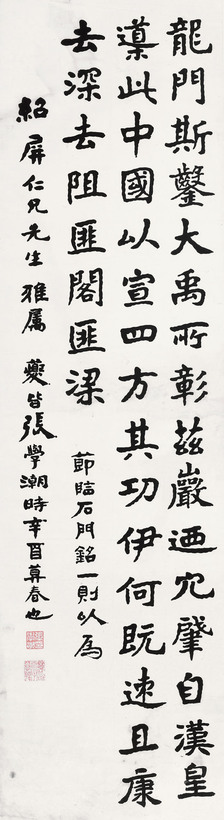 龍門斯鑿大禹所彰茲巖迺穴肇自漢皇
導此中國以宣四方其功伊何既速且康
去深去阻匪閣匪梁
節臨石門銘一則以為
紹屏仁兄先生雅屬 夔皆張學潮時辛酉暮春也